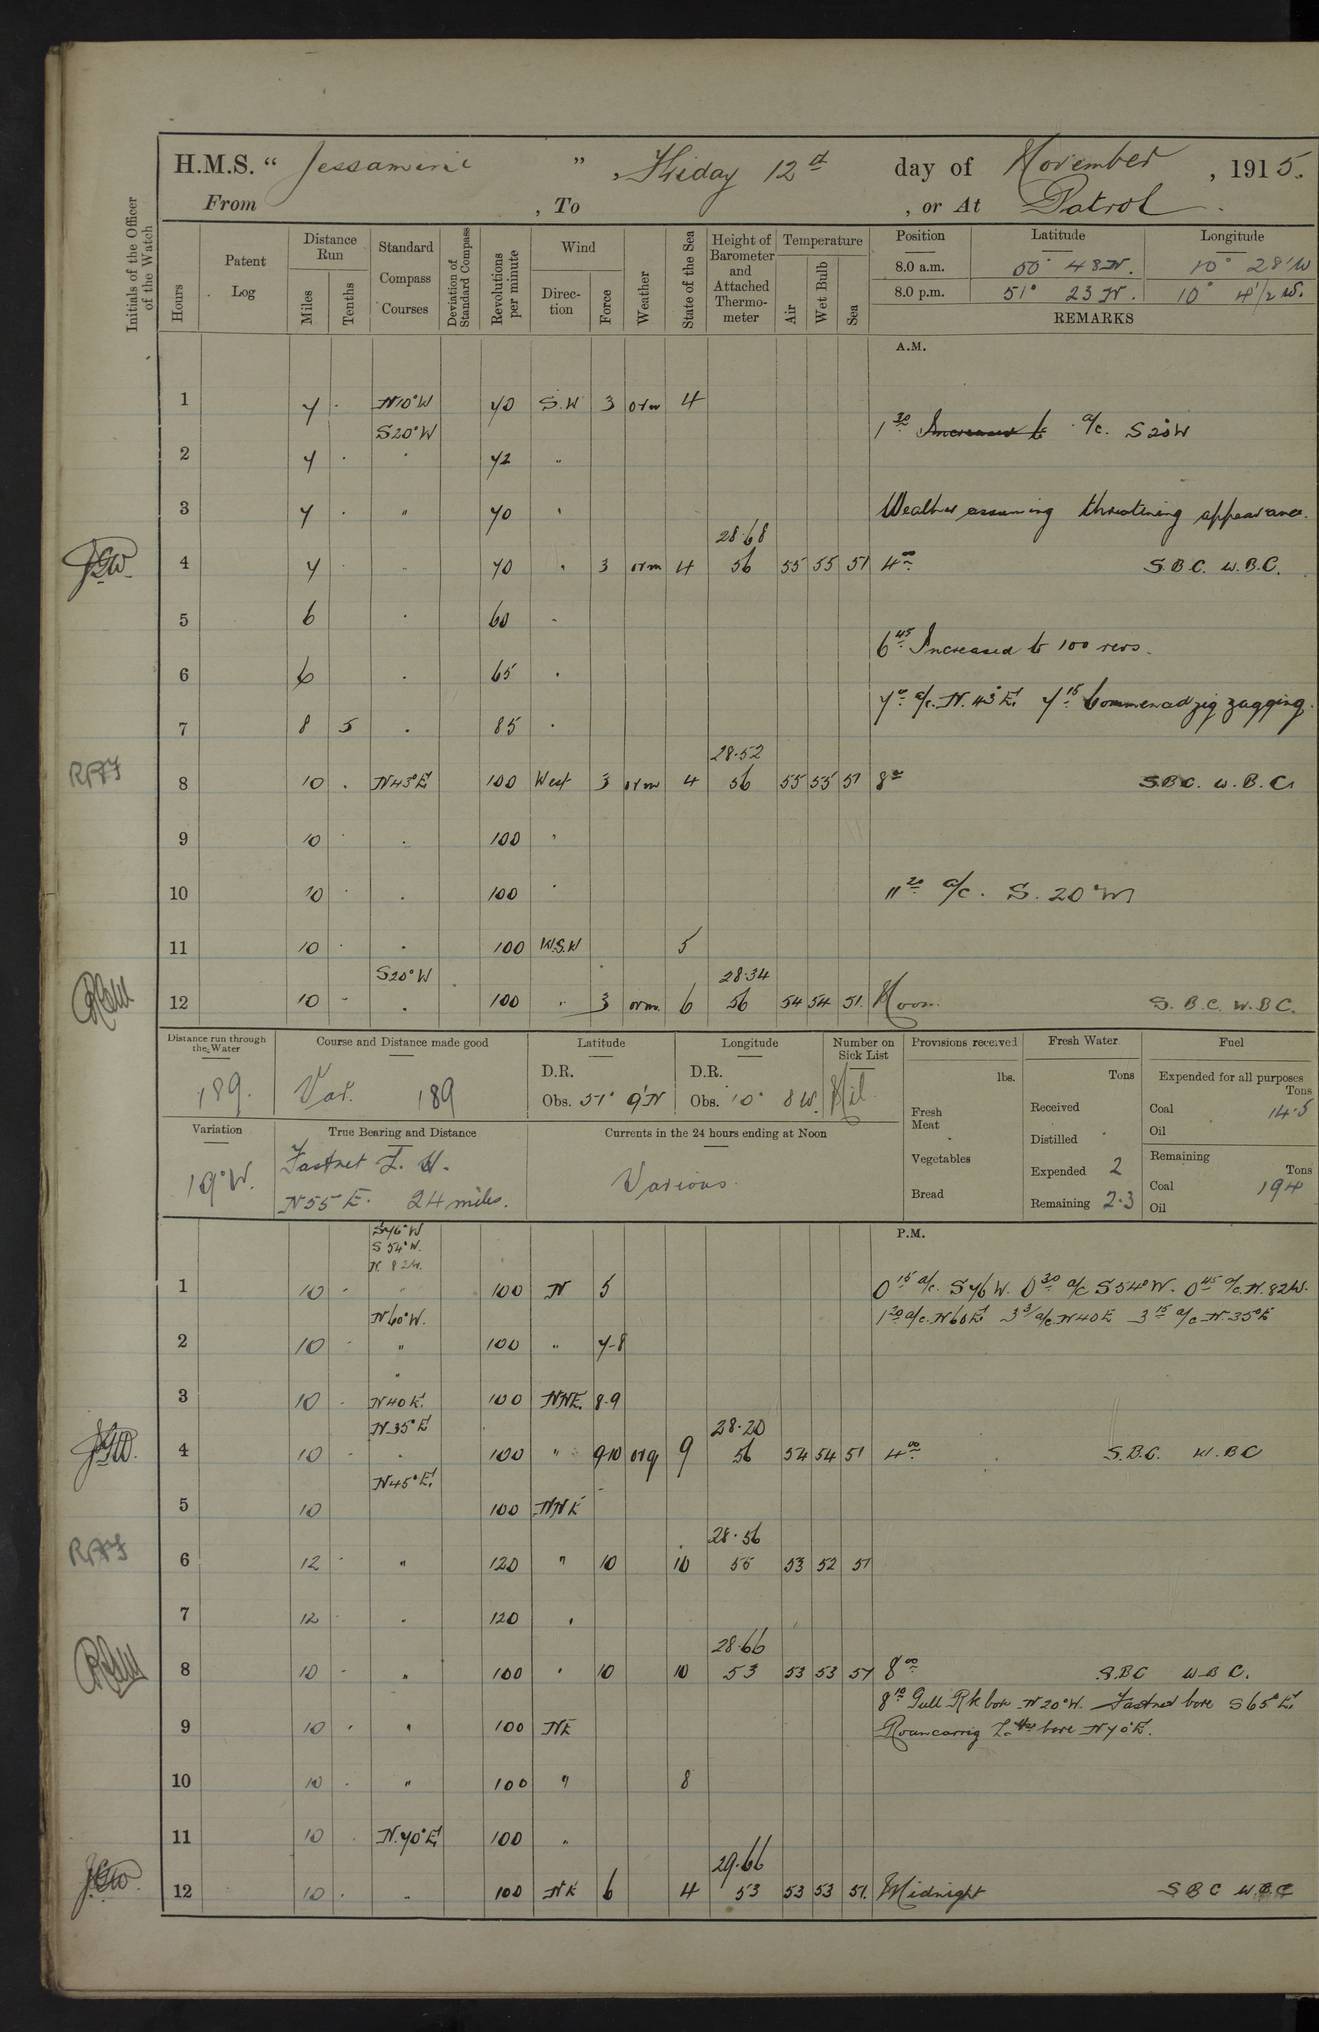 H.M.S. “ Jessamine ” , Friday 12th day of November , 1915.
From , To , or At Patrol
Initials of the Officer of the Watch
Hours
Patent Log
Distance Run
Miles
Tenths
Standard Compass Courses
Deviation of Standard Compass
Revolutions per minute
Wind
Direction
Force
Weather
State of the Sea
Height of Barometer and Attached Thermometer
Temperature
Air
Wet Bulb
Sea
Position Latitude Longitude
8.0 a.m. 50° 48 N. 10° 28' W
8.0 p.m. 51° 23 N. 10° 4 1/2 W.
REMARKS
A.M.
1 7 . N10°W 70 S.W 3 orm 4
S20°W
1 30 Increased to a/c. S 20 W
2 7 . . 72 "
3 7 . " 70 " Weather assuming threatening appearance.
28.68
4 7 . 70 " 3 orm 4 56 55 55 51 4 00 S.B.C. W.B.C.
5 6 . 60 "
6 45 Increased to 100 revs.
6 6 . 65 "
7 0 a/c. N. 43 E. 7 15 Commenced zig zagging.
7 8 5 . 85 "
28.52
8 10 . N43°E 100 West 3 orm 4 56 55 55 51 8 00 S.B.C. W.B.C.
9 10 . . 100 "
10 10 . . 100 " 11 20 a/c. S. 20°W
11 10 . . 100 W.S.W 5
S20°W 28.34
12 10 . . 100 " 3 orm. 6 56 54 54 51. Noon. S.B.C. W.B.C.
Distance run through the Water
189.
Course and Distance made good
Var. 189
Latitude
D.R.
Obs. 51° 9' N
Longitude
D.R.
Obs. 10° 8 W.
Number on Sick List
Nil
Provisions received
lbs.
Fresh Meat
Vegetables
Bread
Fresh Water
Tons
Received
Distilled
Expended 2
Remaining 23
Fuel
Expended for all purposes
Tons
Coal 14.5
Oil
Remaining
Tons
Coal 194
Oil
Variation
19°W.
True Bearing and Distance
Fastnet L. H.
N55 E. 24 miles.
Currents in the 24 hours ending at Noon
Various.
P.M.
S76°W
S 54°W.
N. 82W.
1 10 . 100 N 5 0 15 a/c. S76W. 0 30 a/c S54°W. 0 45 a/c. N. 82W.
N60°W. 1 20 a/c. N60E 3 3/ a/c. N40E 3 15 a/c N. 35°E
2 10 . " 100 " 7-8
"
3 10 . N40E. 100 NNE. 8-9
N35°E 28.20
4 10 . . 100 " 9-10 orq 9 56 54 54 51 4 00 S.B.C. W.B.C
N45°E.
5 10 100 NNE
28.56
6 12 . " 120 " 10 10 55 53 52 51
7 12 . . 120 "
28.66
8 10 . " 100 " 10 10 53 53 53 51 8 00 S.B.C W.B.C.
8 10 Gull Rk bore N20°W. Fastnet bore S65°E.
9 10 . " 100 NE Roancarrig L. Hse bore N70°E.
10 10 . " 100 " 8
11 10 . N.70°E. 100 "
29.66
12 10 . " 100 NE 6 4 53 53 53 51. Midnight S.B.C W.B.C